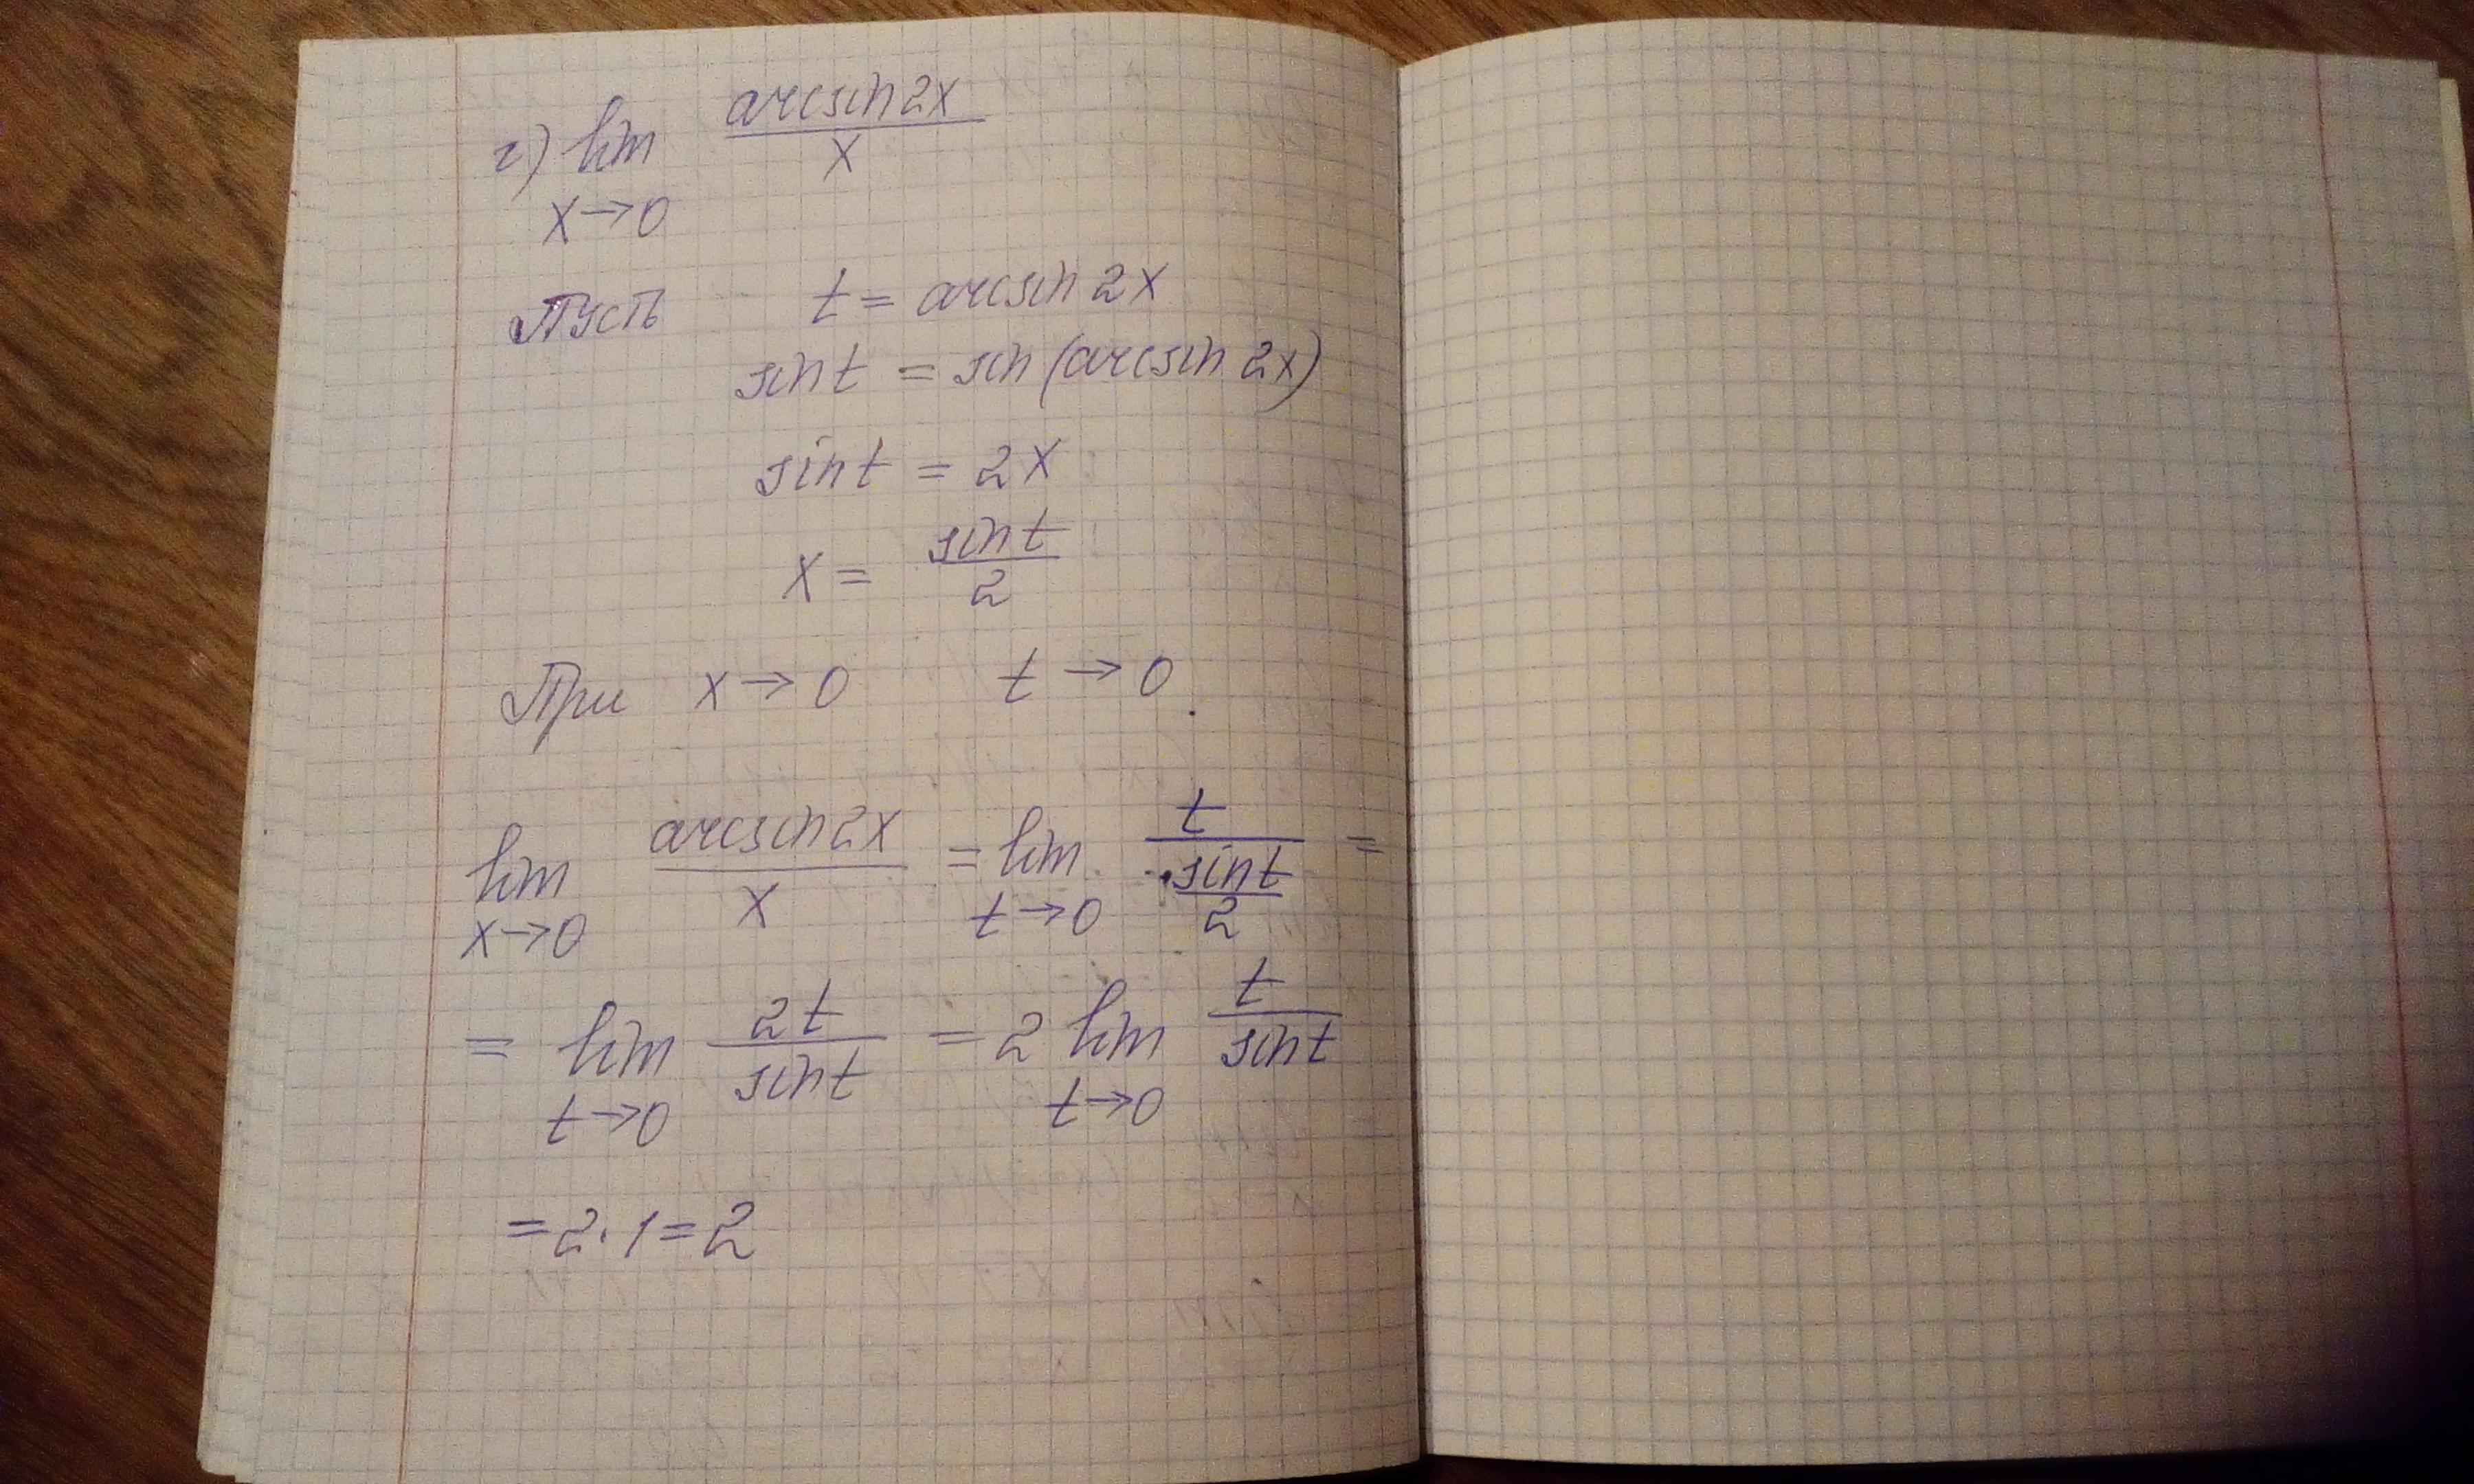 г) lim arcsin 2x / x
x→0
Пусть t = arcsin 2x
sin t = sin (arcsin 2x)
sin t = 2x
x = sin t / 2
При x→0 t→0.
lim arcsin 2x / x = lim t / (sin t / 2) =
x→0 t→0
= lim 2t / sin t = 2 lim t / sin t
t→0 t→0
= 2·1=2